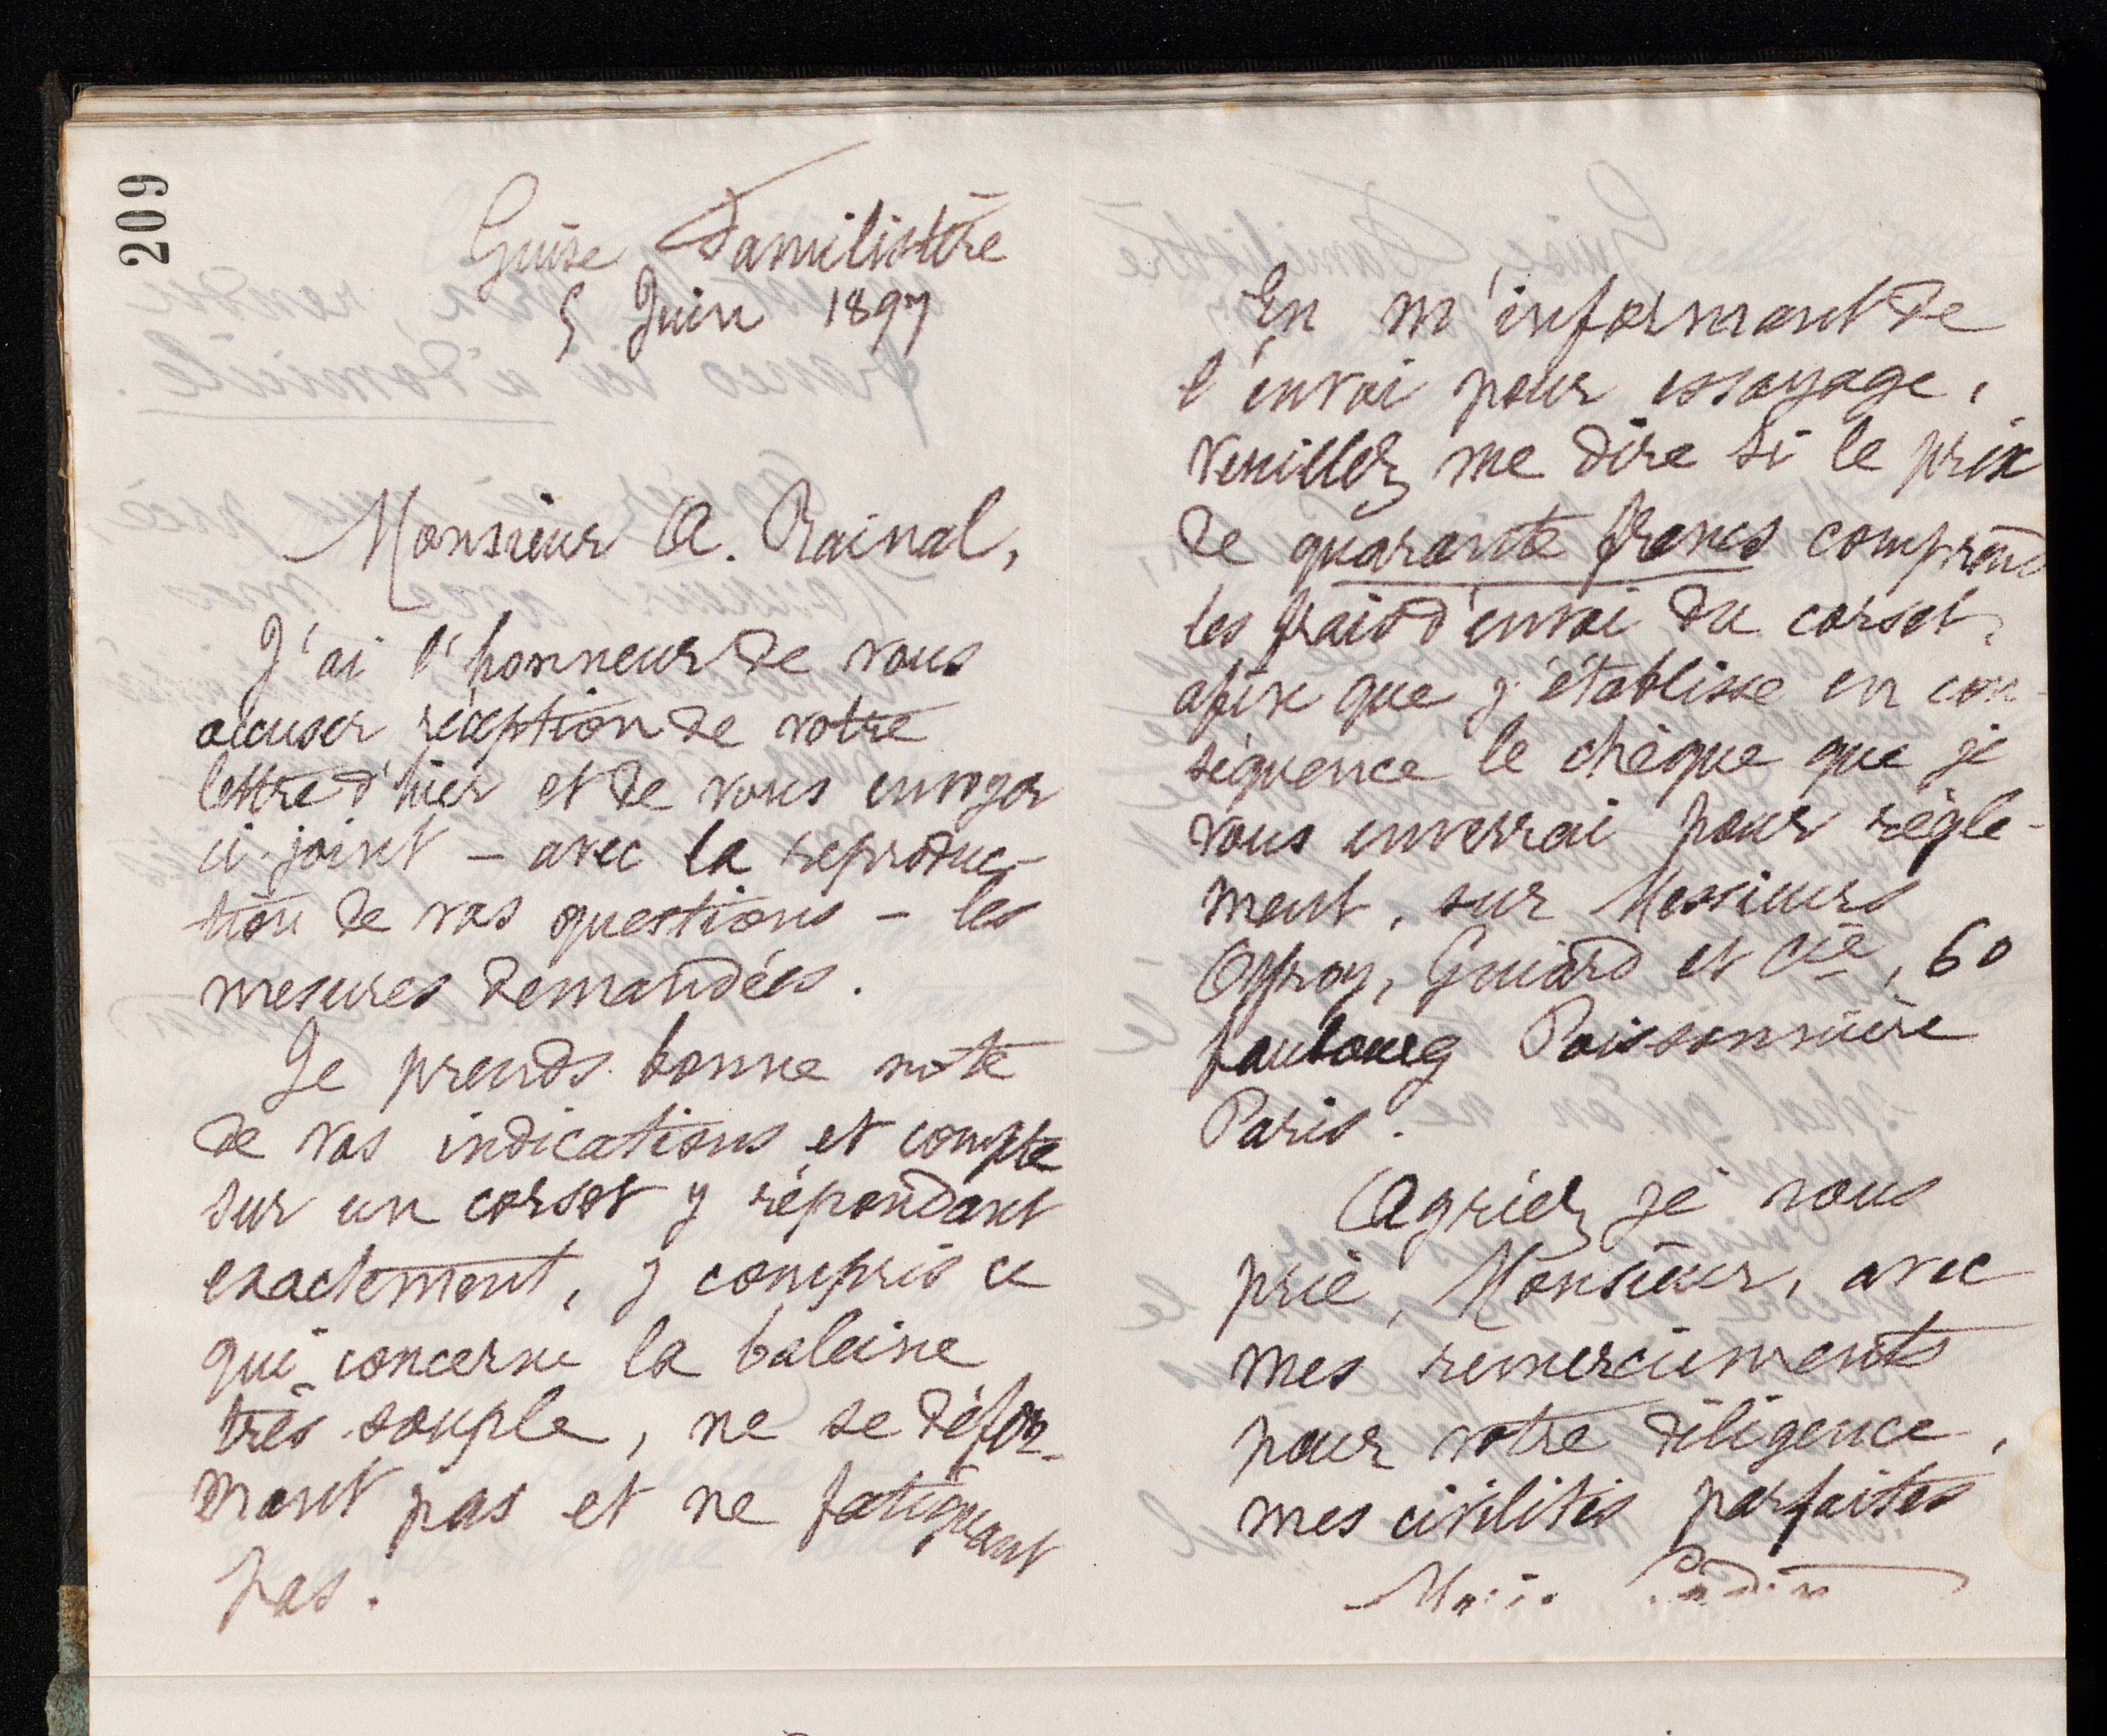 209
Guise Familistère
5 Juin 1897
Monsieur A. Rainal,
J'ai l'honneur de vous
accuser réception de votre
lettre d'hier et de vous envoyer
ci-joint – avec la reproduc-
tion de vos questions – les
mesures demandées.
Je prends bonne note
de vos indications et compte
sur un corset y répondant
exactement, y compris ce
qui concerne la baleine
très souple, ne se défor-
mant pas et ne fatiguant
pas.
En m'informant de
l'envoi pour essayage,
veuillez me dire si le prix
de quarante francs comprend
les frais d'envoi du corset,
afin que j'établisse en con-
séquence le chèque que je
vous enverrai pour règle-
ment, sur Messieurs
Offroy, Guiard et Cie, 60
faubourg Poissonnière
Paris.
Agréez, je vous
prie, Monsieur, avec
mes remerciements
pour votre diligence,
mes civilités parfaites
Marie Godin